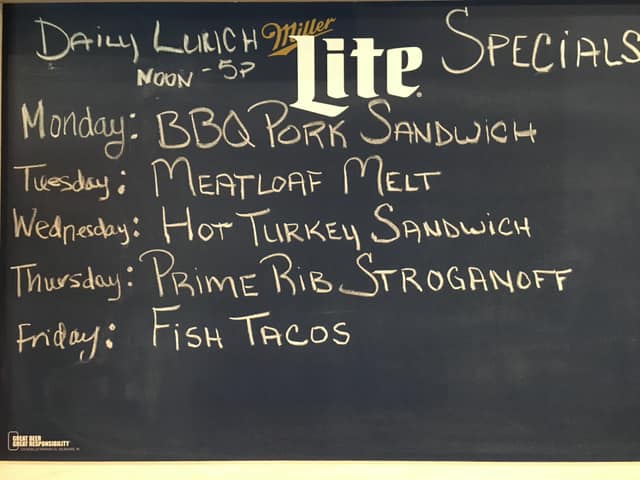 DAILY LUNCH Miller Lite SPECIALS
NOON - 5P
Monday: BBQ PORK SANDWICH
Tuesday: MEATLOAF MELT
Wednesday: HOT TURKEY SANDWICH
Thursday: PRIME RIB STROGANOFF
Friday: FISH TACOS
GREAT BEER
GREAT RESPONSIBILITY